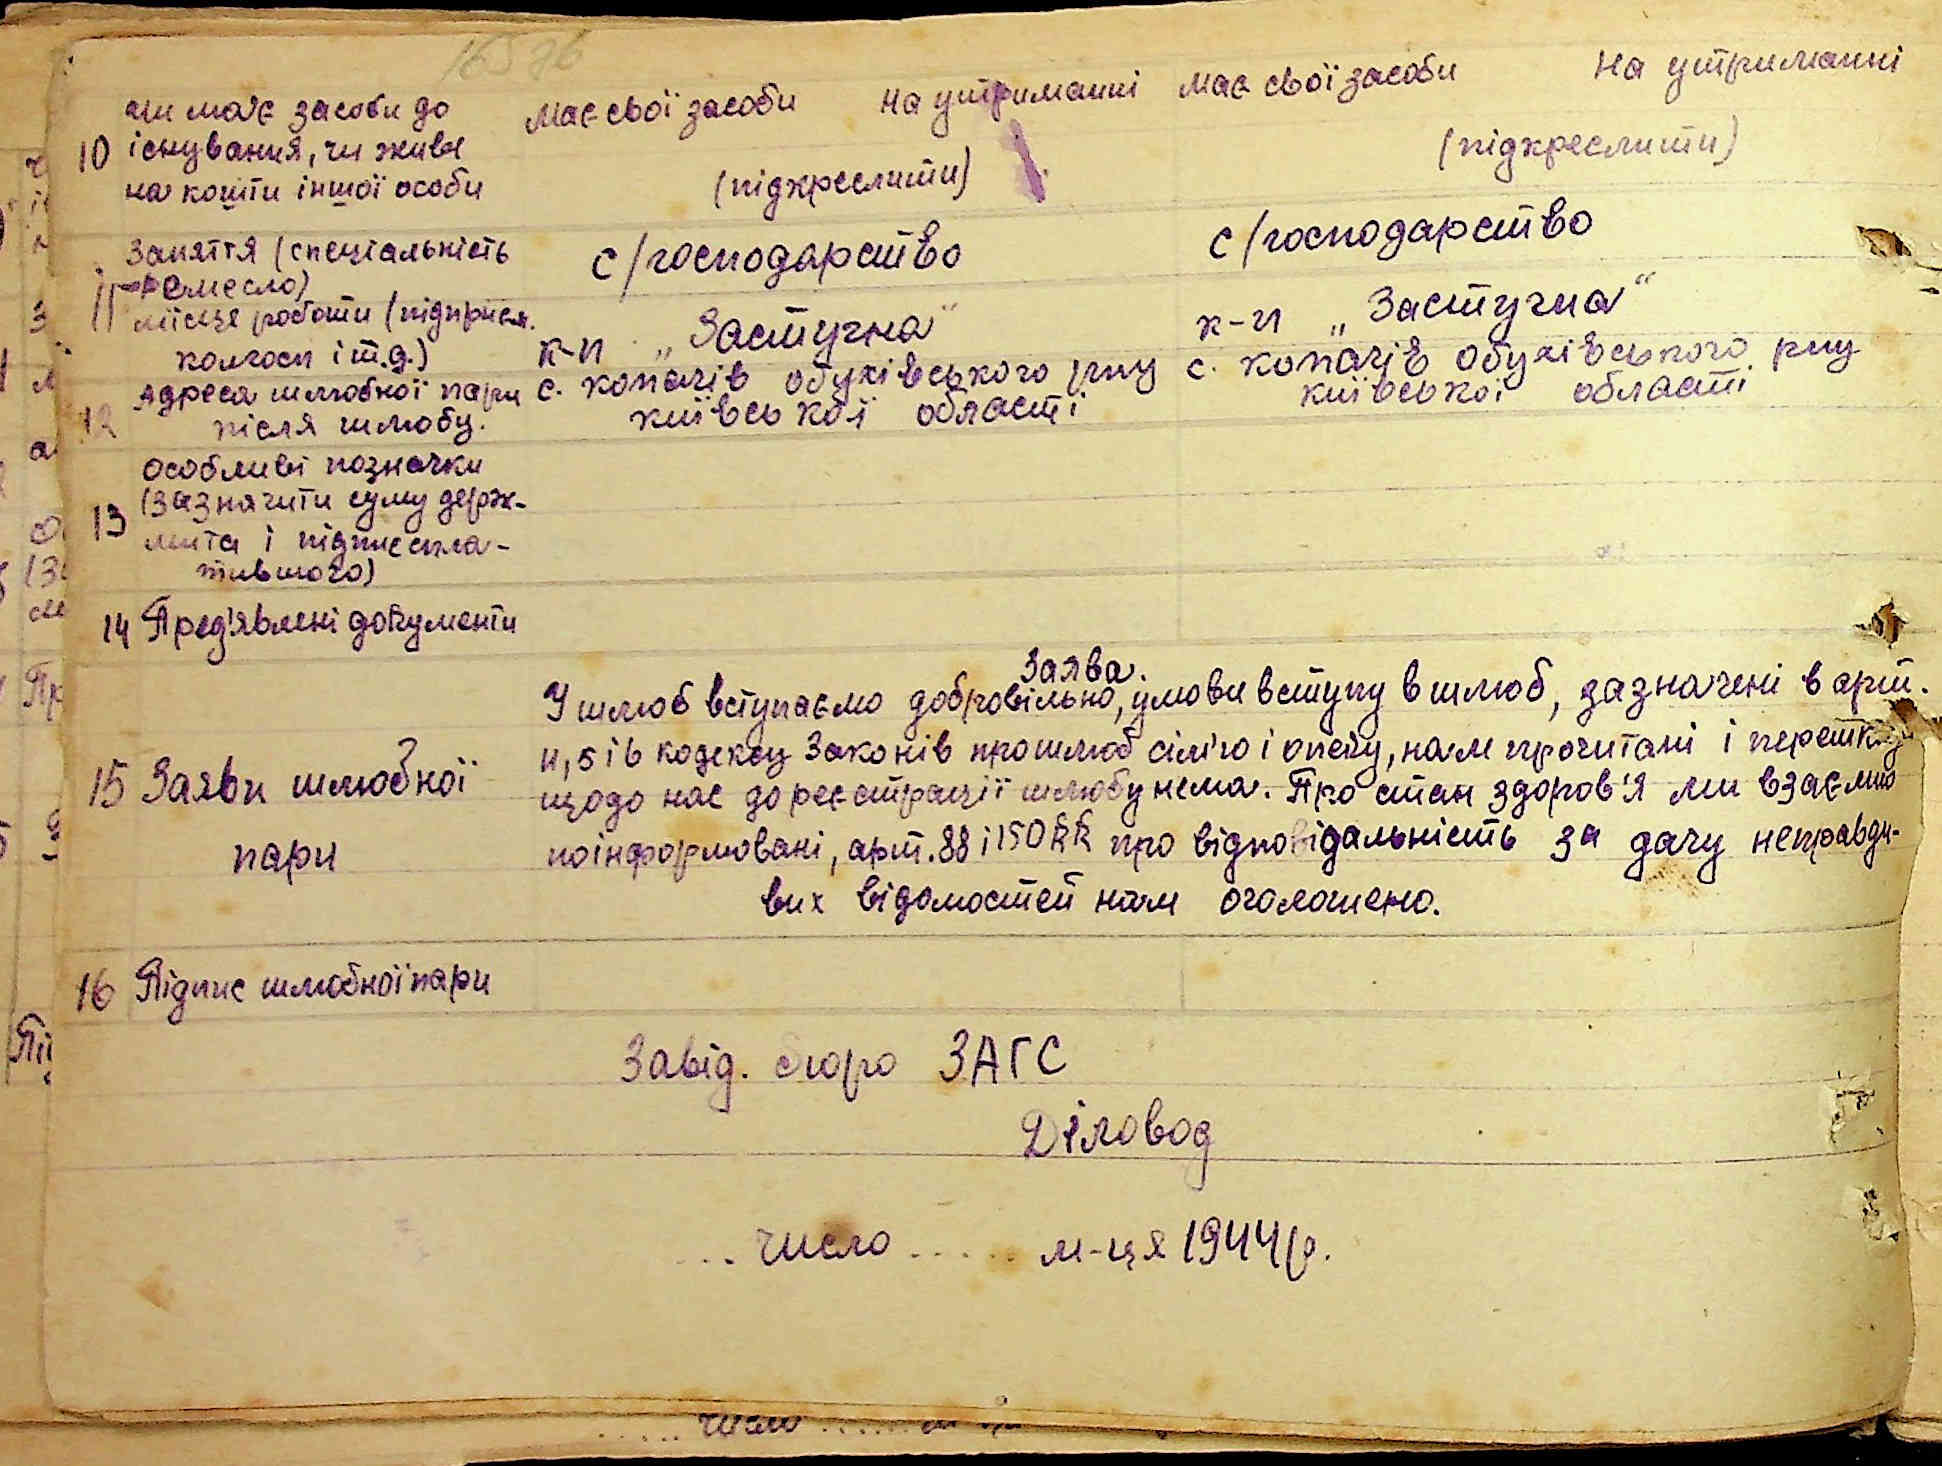 165 зб
10 чи має засоби до існування, чи живе на кошти іншої особи
має свої засоби на утриманні
(підкреслити)
має свої засоби на утриманні
(підкреслити)
11 Заняття (спеціальність
ремесло)
місце роботи (підприєм.
колгосп і т.д.)
с/господарство
к-п „Заступна"
с/господарство
к-п „Заступна"
12 Адреса шлюбної пари
після шлюбу.
с. копачів обухівського р-ну
київської області
с. копачів обухівського р-ну
київської області
13 особливі позначки
(зазначити суму держ-
мита і підпис спла-
тившого)
14 Пред'явлені документи
15 Заяви шлюбної
пари
Заява.
У шлюб вступаємо добровільно, умови вступу в шлюб, зазначені в арт.
4, 5 і 6 кодексу Законів про шлюб сім'ю і опеку, нам прочитані і перешкод
щодо нас до реєстрації шлюбу нема. Про стан здоров'я ми взаємно
поінформовані, арт. 88 і 150 КК про відповідальність за дачу неправди-
вих відомостей нам оголошено.
16 Підпис шлюбної пари
Завід. бюро ЗАГС
Діловод
... число ..... м-ця 1944 р.
..... число ......